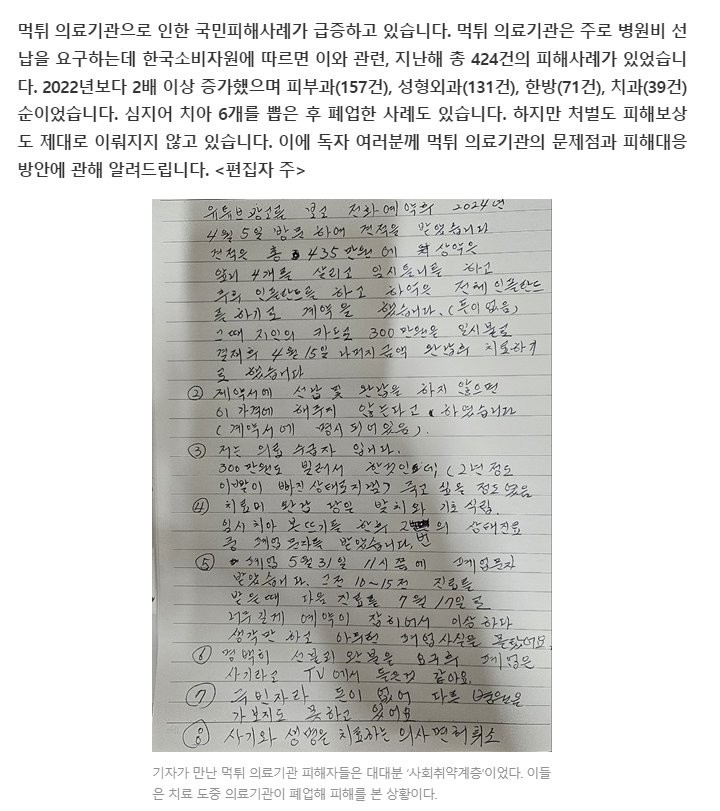 먹튀 의료기관으로 인한 국민피해사례가 급증하고 있습니다. 먹튀 의료기관은 주로 병원비 선
납을 요구하는데 한국소비자원에 따르면 이와 관련, 지난해 총 424건의 피해사례가 있었습니
다. 2022년보다 2배 이상 증가했으며 피부과(157건), 성형외과(131건), 한방(71건), 치과(39건)
순이었습니다. 심지어 치아 6개를 뽑은 후 폐업한 사례도 있습니다. 하지만 처벌도 피해보상
도 제대로 이뤄지지 않고 있습니다. 이에 독자 여러분께 먹튀 의료기관의 문제점과 피해대응
방안에 관해 알려드립니다. <편집자 주>
유튜브 광고를 보고 전화예약후 2024년
4월 5일 방문하여 견적을 받았습니다
견적은 총 435만원에 상악은
앞니 4개를 살리고 임시틀니를 하고
후 임플란트를 하고 하악은 전체 임플란트
를 하기로 계약을 했습니다. (돈이 없음)
그때 지인의 카드로 300만원을 일시불로
결재후 4월 15일 나머지금액 완납후 치료하기
로 했습니다
② 계약서에 선납 및 완납을 하지 않으면
이 가격에 해주지 않는다고 하였습니다
(계약서에 명시되어있음).
③ 저는 의료 수급자 입니다.
300만원도 빌려서 한것인데, (2년 정도
이빨이 빠진 상태로지냄) 죽고 싶을 정도였음
④ 치료비 완납 당일 발치와 기초식립.
임시치아 본뜨기를 한후 2번의 상태진료
중 폐업문자를 받았습니다.
⑤ 폐업 5월 31일 11시쯤에 폐업문자
받았습니다. 그전 10~15전 진료를
받을때 다음 진료를 7월 17일로
너무길게 예약이 잡혀어서 이상하다
생각만 하고 폐업사실을 몰랐어요.
⑥ 명백히 선불리 완불을 요구후 폐업은
사기라고 TV에서 들은것 같아요.
⑦ 극빈자라 돈이 없어 다른 병원을
가보지도 못하고 있어요
⑧ 사기와 생명을 치료하는 의사면허취소
기자가 만난 먹튀 의료기관 피해자들은 대대분 ‘사회취약계층’이었다. 이들
은 치료 도중 의료기관이 폐업해 피해를 본 상황이다.